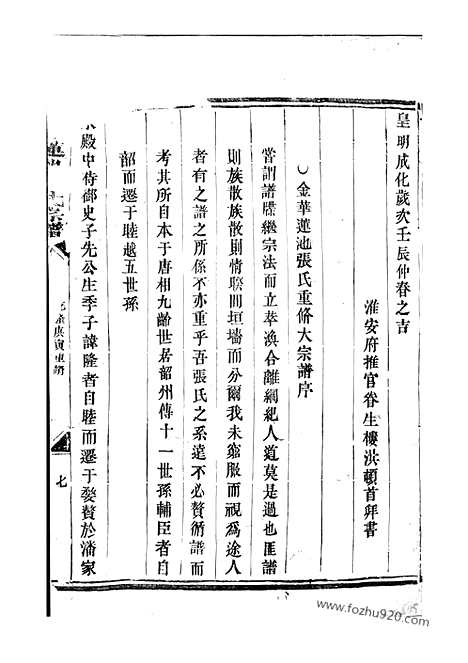 皇明成化歲次壬辰仲春之吉
淮安府推官眷生樓洪頓首拜書
金華蓮池張氏重修大宗譜序
嘗謂譜牒繼宗法而立萃渙合離綱紀人道莫是過也匪譜
則族散族散則情睽間垣墻而分爾我未窮服而視為途人
者有之譜之所係不亦重乎吾張氏之系遠不必贅循譜而
考其所自本于唐相九齡世居韶州傳十一世孫輔臣者自
韶而遷于睦越五世孫
殿中侍御史子先公生季子諱隆者自睦而遷于婺贅於潘家
蓮 氏宗譜
慶 重
七
www.fozhu920.com